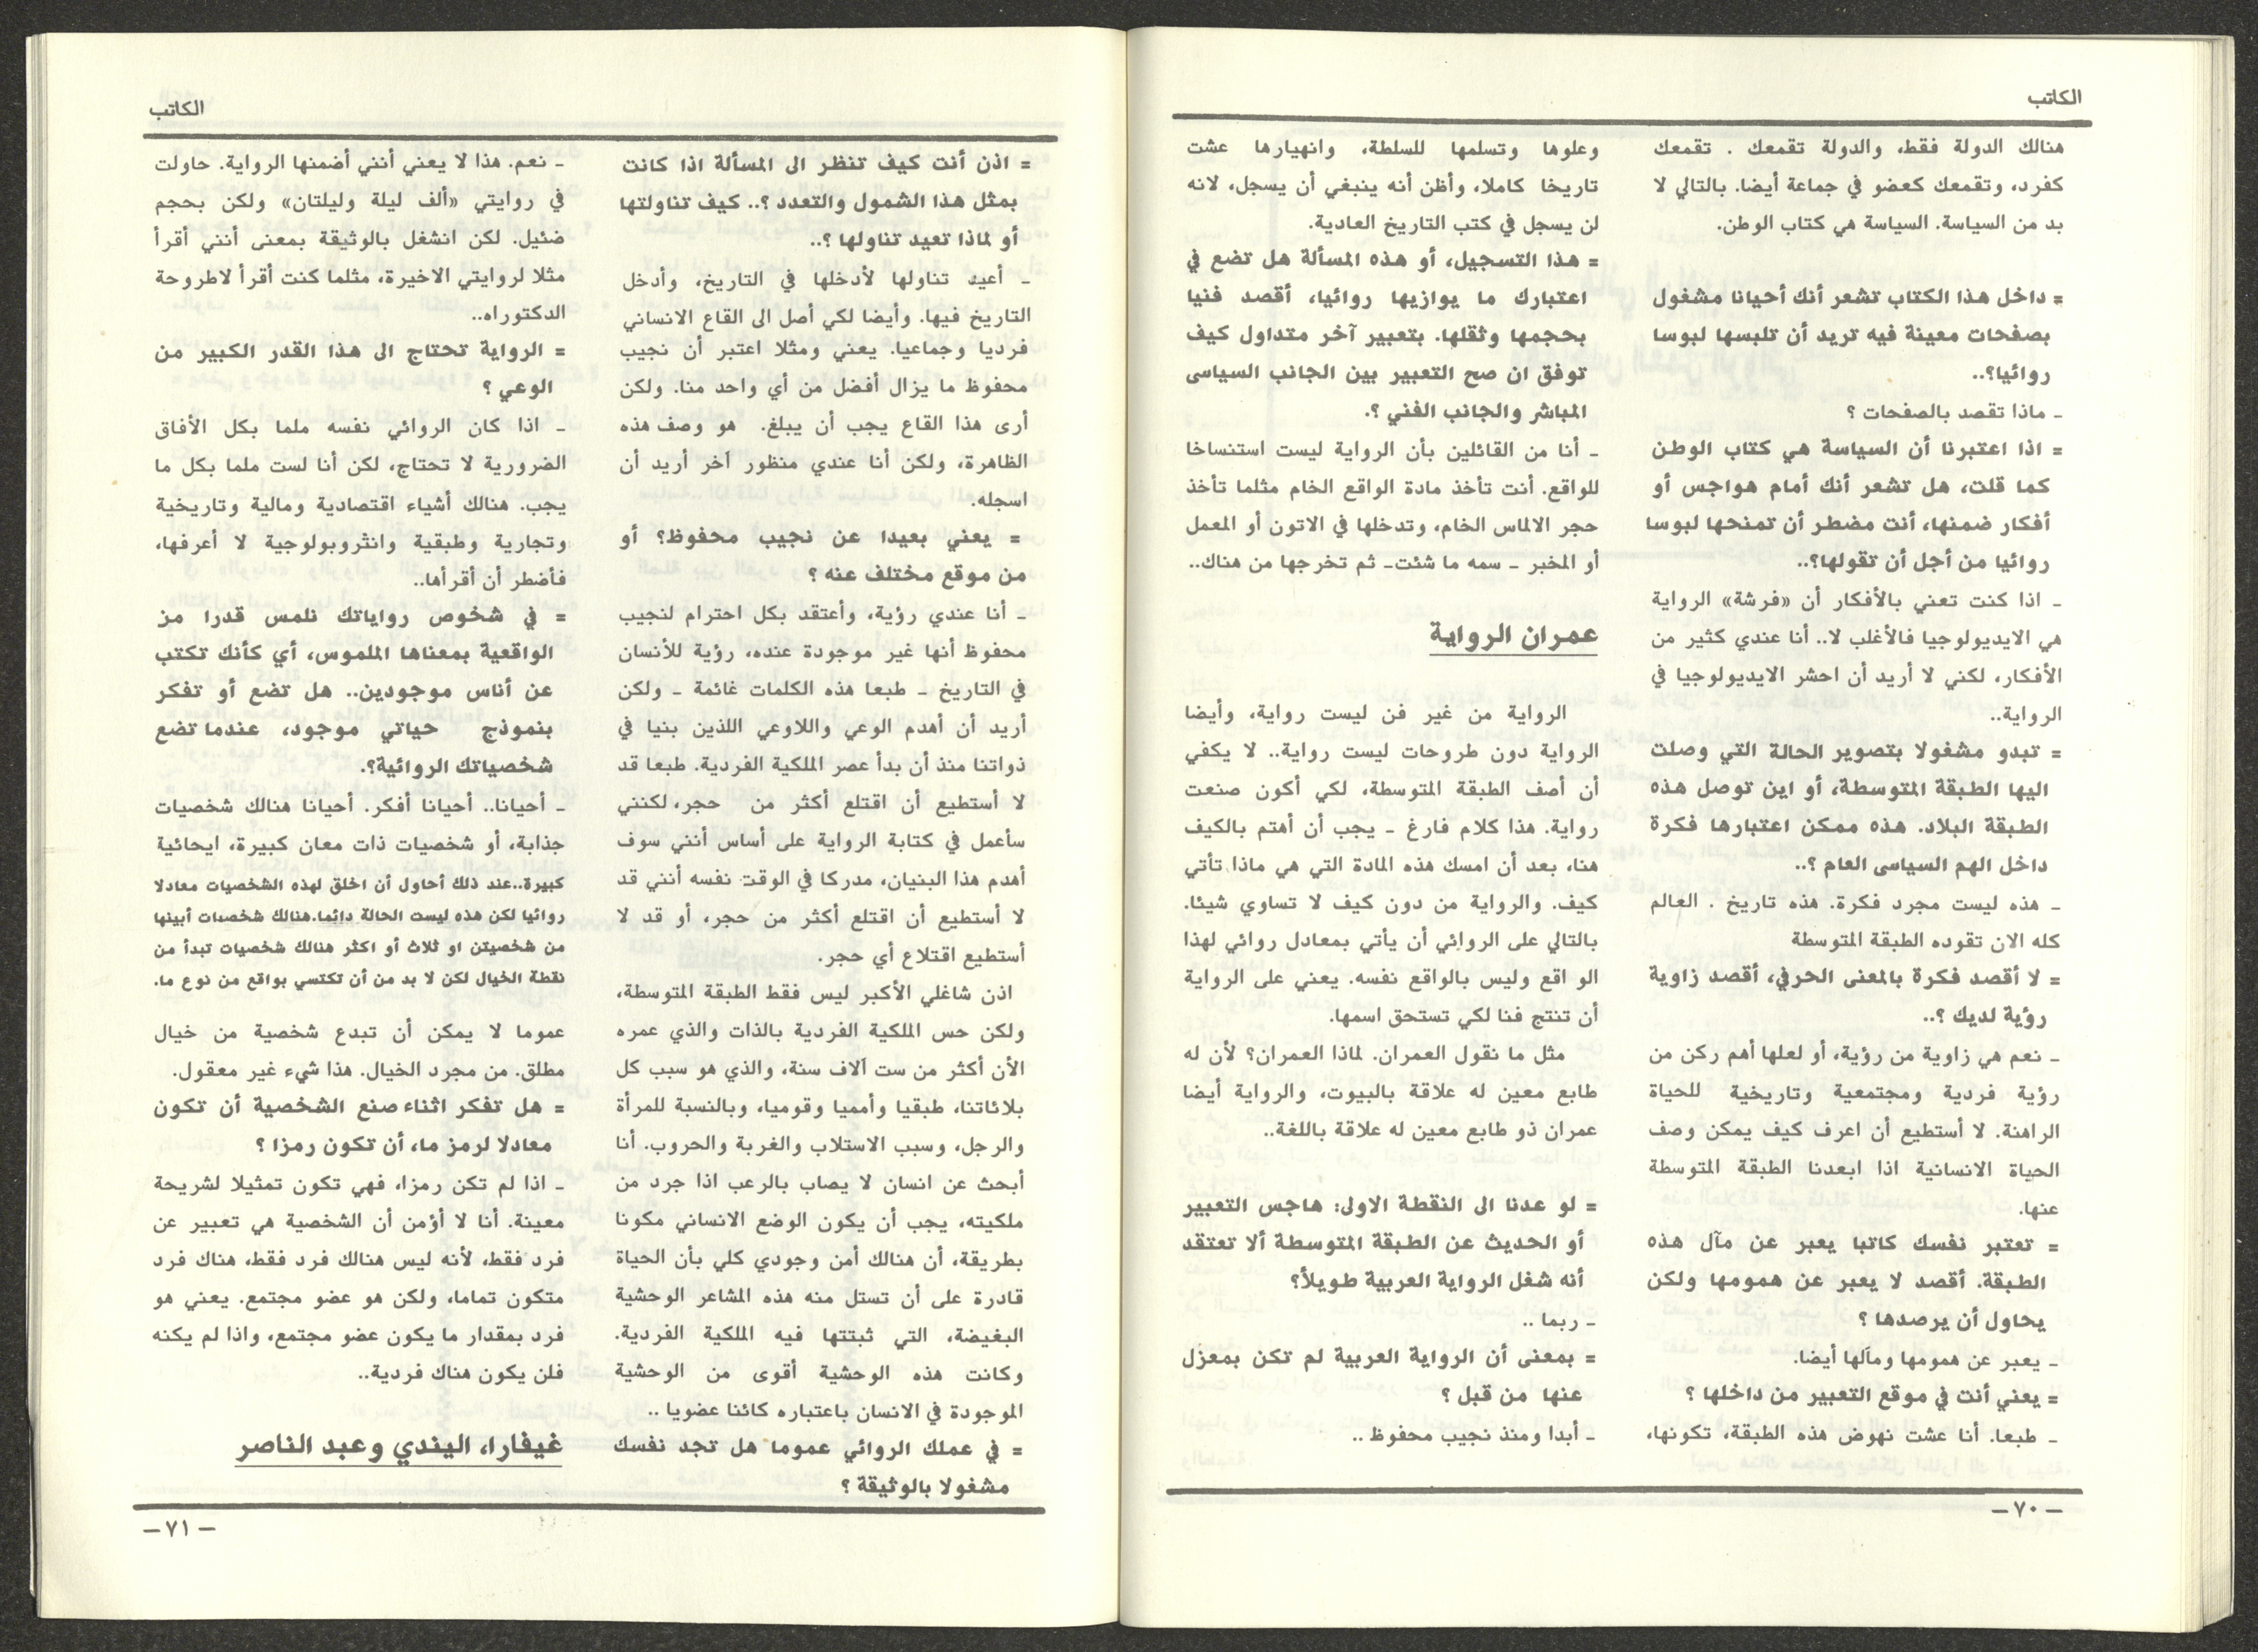 الكاتب
هنالك الدولة فقط، والدولة تقمعك . تقمعك
كفرد، وتقمعك كعضو في جماعة أيضا. بالتالي لا
بد من السياسة. السياسة هي كتاب الوطن.
= داخل هذا الكتاب تشعر أنك أحيانا مشغول
بصفحات معينة فيه تريد أن تلبسها لبوسا
روائيا؟..
ـ ماذا تقصد بالصفحات ؟
= اذا اعتبرنا أن السياسة هي كتاب الوطن
كما قلت، هل تشعر أنك أمام هواجس أو
أفكار ضمنها، أنت مضطر أن تمنحها لبوسا
روائيا من أجل أن تقولها؟..
ـ اذا كنت تعني بالأفكار أن «فرشة» الرواية
هي الايديولوجيا فالأغلب لا.. أنا عندي كثير من
الأفكار، لكني لا أريد أن احشر الايديولوجيا في
الرواية..
= تبدو مشغولا بتصوير الحالة التي وصلت
اليها الطبقة المتوسطة، أو اين توصل هذه
الطبقة البلاد. هذه ممكن اعتبارها فكرة
داخل الهم السياسى العام ؟..
ـ هذه ليست مجرد فكرة. هذه تاريخ . العالم
كله الان تقوده الطبقة المتوسطة
= لا أقصد فكرة بالمعنى الحرفي، أقصد زاوية
رؤية لديك ؟..
ـ نعم هي زاوية من رؤية، أو لعلها أهم ركن من
رؤية فردية ومجتمعية وتاريخية للحياة
الراهنة. لا أستطيع أن اعرف كيف يمكن وصف
الحياة الانسانية اذا ابعدنا الطبقة المتوسطة
عنها.
= تعتبر نفسك كاتبا يعبر عن مآل هذه
الطبقة. أقصد لا يعبر عن همومها ولكن
يحاول أن يرصدها ؟
ـ يعبر عن همومها ومآلها أيضا.
= يعني أنت في موقع التعبير من داخلها ؟
ـ طبعا. أنا عشت نهوض هذه الطبقة، تكونها،
وعلوها وتسلمها للسلطة، وانهيارها عشت
تاريخا كاملا، وأظن أنه ينبغي أن يسجل، لانه
لن يسجل في كتب التاريخ العادية.
= هذا التسجيل، أو هذه المسألة هل تضع في
اعتبارك ما يوازيها روائيا، أقصد فنيا
بحجمها وثقلها. بتعبير آخر متداول كيف
توفق ان صح التعبير بين الجانب السياسى
المباشر والجانب الفني ؟.
ـ أنا من القائلين بأن الرواية ليست استنساخا
للواقع. أنت تأخذ مادة الواقع الخام مثلما تأخذ
حجر الالماس الخام، وتدخلها في الاتون أو المعمل
أو المخبر ـ سمه ما شئت ـ ثم تخرجها من هناك..
عمران الرواية
الرواية من غير فن ليست رواية، وأيضا
الرواية دون طروحات ليست رواية.. لا يكفي
أن أصف الطبقة المتوسطة، لكي أكون صنعت
رواية. هذا كلام فارغ ـ يجب أن أهتم بالكيف
هنا، بعد أن امسك هذه المادة التي هي ماذا تأتي
كيف. والرواية من دون كيف لا تساوي شيئا.
بالتالي على الروائي أن يأتي بمعادل روائي لهذا
الواقع وليس بالواقع نفسه. يعني على الرواية
أن تنتج فنا لكي تستحق اسمها.
مثل ما نقول العمران. لماذا العمران؟ لأن له
طابع معين له علاقة بالبيوت، والرواية أيضا
عمران ذو طابع معين له علاقة باللغة..
= لو عدنا الى النقطة الاولى: هاجس التعبير
أو الحديث عن الطبقة المتوسطة ألا تعتقد
أنه شغل الرواية العربية طويلاً؟
ـ ربما ..
= بمعنى أن الرواية العربية لم تكن بمعزل
عنها من قبل ؟
ـ أبدا ومنذ نجيب محفوظ ..
ـ ٧٠ ـ
الكاتب
= اذن أنت كيف تنظر الى المسألة اذا كانت
بمثل هذا الشمول والتعدد ؟.. كيف تناولتها
أو لماذا تعيد تناولها ؟..
ـ أعيد تناولها لأدخلها في التاريخ، وأدخل
التاريخ فيها. وأيضا لكي أصل الى القاع الانساني
فرديا وجماعيا. يعني ومثلا اعتبر أن نجيب
محفوظ ما يزال أفضل من أي واحد منا. ولكن
أرى هذا القاع يجب أن يبلغ. هو وصف هذه
الظاهرة، ولكن أنا عندي منظور آخر أريد أن
اسجله.
= يعني بعيدا عن نجيب محفوظ؟ أو
من موقع مختلف عنه ؟
ـ أنا عندي رؤية، وأعتقد بكل احترام لنجيب
محفوظ أنها غير موجودة عنده، رؤية للأنسان
في التاريخ ـ طبعا هذه الكلمات غائمة ـ ولكن
أريد أن أهدم الوعي واللاوعي اللذين بنيا في
ذواتنا منذ أن بدأ عصر الملكية الفردية. طبعا قد
لا أستطيع أن اقتلع أكثر من حجر، لكنني
سأعمل في كتابة الرواية على أساس أنني سوف
أهدم هذا البنيان، مدركا في الوقت نفسه أنني قد
لا أستطيع أن اقتلع أكثر من حجر، أو قد لا
أستطيع اقتلاع أي حجر.
اذن شاغلي الأكبر ليس فقط الطبقة المتوسطة،
ولكن حس الملكية الفردية بالذات والذي عمره
الأن أكثر من ست آلاف سنة، والذي هو سبب كل
بلائاتنا، طبقيا وأمميا وقوميا، وبالنسبة للمرأة
والرجل، وسبب الاستلاب والغربة والحروب. أنا
أبحث عن انسان لا يصاب بالرعب اذا جرد من
ملكيته، يجب أن يكون الوضع الانساني مكونا
بطريقة، أن هنالك أمن وجودي كلي بأن الحياة
قادرة على أن تستل منه هذه المشاعر الوحشية
البغيضة، التي ثبتتها فيه الملكية الفردية.
وكانت هذه الوحشية أقوى من الوحشية
الموجودة في الانسان باعتباره كائنا عضويا ..
= في عملك الروائي عموما هل تجد نفسك
مشغولا بالوثيقة ؟
ـ نعم. هذا لا يعني أنني أضمنها الرواية. حاولت
في روايتي «ألف ليلة وليلتان» ولكن بحجم
ضئيل. لكن انشغل بالوثيقة بمعنى أنني أقرأ
مثلا لروايتي الاخيرة، مثلما كنت أقرأ لاطروحة
الدكتوراه..
= الرواية تحتاج الى هذا القدر الكبير من
الوعي ؟
ـ اذا كان الروائي نفسه ملما بكل الأفاق
الضرورية لا تحتاج، لكن أنا لست ملما بكل ما
يجب. هنالك أشياء اقتصادية ومالية وتاريخية
وتجارية وطبقية وانثروبولوجية لا أعرفها،
فأضطر أن أقرأها..
= في شخوص رواياتك نلمس قدرا من
الواقعية بمعناها الملموس، أي كأنك تكتب
عن أناس موجودين.. هل تضع أو تفكر
بنموذج حياتي موجود، عندما تضع
شخصياتك الروائية؟.
ـ أحيانا.. أحيانا أفكر. أحيانا هنالك شخصيات
جذابة، أو شخصيات ذات معان كبيرة، ايحائية
كبيرة..عند ذلك أحاول أن اخلق لهذه الشخصيات معادلا
روائيا لكن هذه ليست الحالة دائما.هنالك شخصيات أبينها
من شخصيتن او ثلاث أو اكثر هنالك شخصيات تبدأ من
نقطة الخيال لكن لا بد من أن تكتسي بواقع من نوع ما.
عموما لا يمكن أن تبدع شخصية من خيال
مطلق. من مجرد الخيال. هذا شيء غير معقول.
= هل تفكر اثناء صنع الشخصية أن تكون
معادلا لرمز ما، أن تكون رمزا ؟
ـ اذا لم تكن رمزا، فهي تكون تمثيلا لشريحة
معينة. أنا لا أؤمن أن الشخصية هي تعبير عن
فرد فقط، لأنه ليس هنالك فرد فقط، هناك فرد
متكون تماما، ولكن هو عضو مجتمع. يعني هو
فرد بمقدار ما يكون عضو مجتمع، واذا لم يكنه
فلن يكون هناك فردية..
غيفارا، اليندي وعبد الناصر
ـ ٧١ ـ